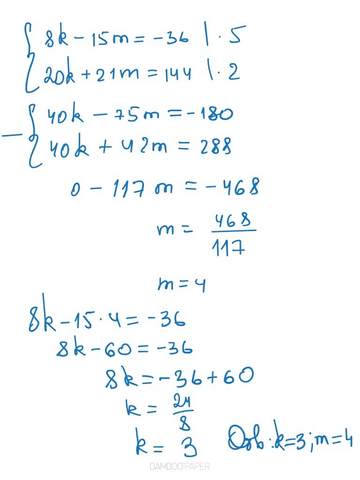 8k - 15m = -36 | · 5
20k + 21m = 144 | · 2
40k - 75m = -180
- 40k + 42m = 288
0 - 117m = -468
m = 468/117
m = 4
8k - 15 · 4 = -36
8k - 60 = -36
8k = -36 + 60
k = 24/8
k = 3 Odb: k=3; m=4
BAMBOO PAPER